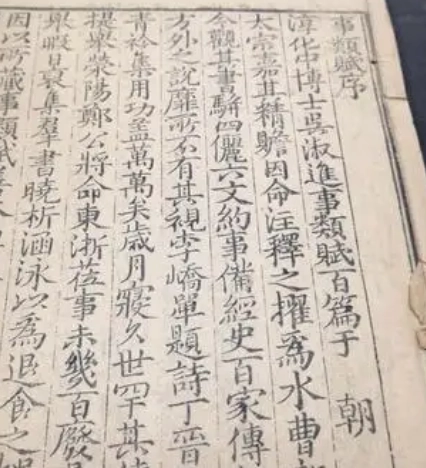 事類賦序
淳化中博士吳淑進事類賦百篇于 朝
太宗嘉其精贍因命注釋之擢爲水曹
今觀其書駢四儷六文約事備經史百家傳
方外之說靡所不有其視李嶠單題詩丁晉
青衿集用功蓋萬萬矣歲月寖久世罕其
提舉滎陽鄭公將命東浙莅事未幾百廢
舉暇日裒集羣書曉析涵泳以爲退食之
因以所藏事類賦